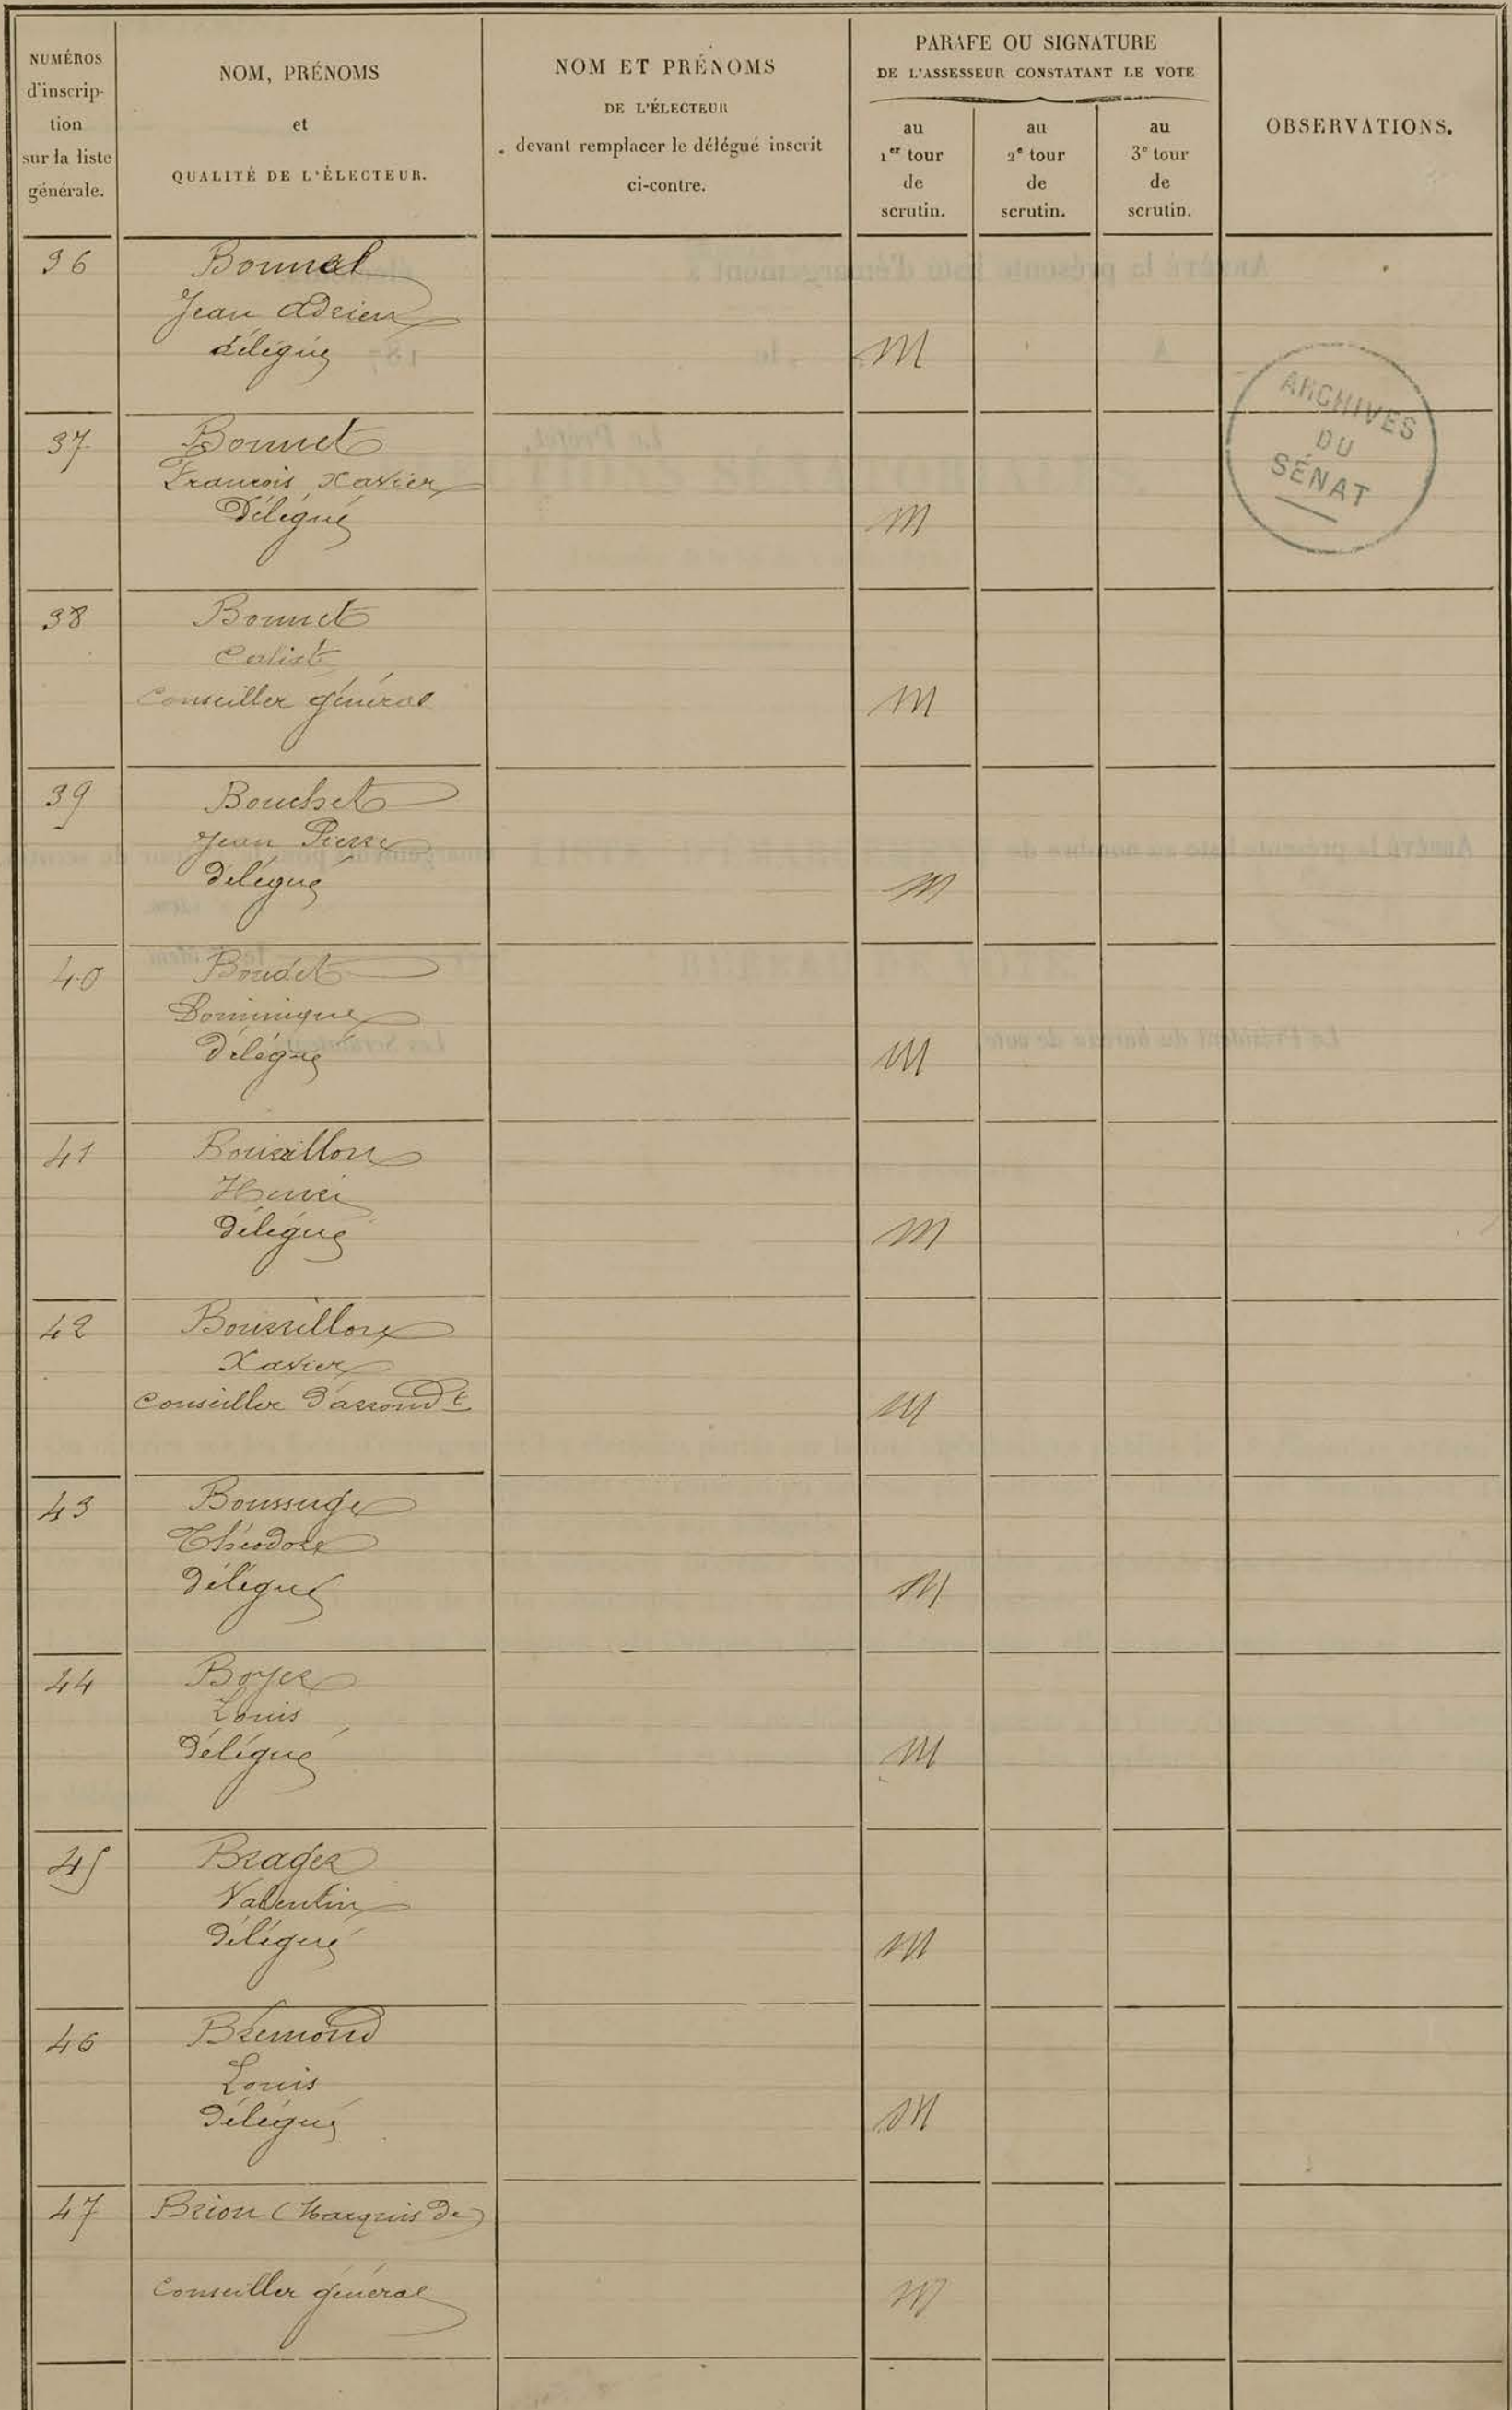 NUMÉROS
d'inscrip-
tion
sur la liste
générale.
NOM, PRÉNOMS
et
QUALITÉ DE L'ÉLECTEUR.
NOM ET PRÉNOMS
DE L'ÉLECTEUR
devant remplacer le délégué inscrit
ci-contre.
PARAFE OU SIGNATURE
DE L'ASSESSEUR CONSTATANT LE VOTE
au
1er tour
de
scrutin.
au
2e tour
de
scrutin.
au
3e tour
de
scrutin.
OBSERVATIONS.
36
Bonnal
Jean Adrien
délégué
M
ARCHIVES
DU
SÉNAT
37
Bonnet
François Xavier
Délégué
M
38
Bonnet
Calist
Conseiller général
M
39
Bouchet
Jean Pierre
Délégué
M
40
Boudet
Dominique
Délégué
M
41
Henri
Délégué
M
42
Boussillon
Xavier
Conseiller d'arrondt
M
43
Boussuge
Théodore
Délégué
M
44
Boyer
Louis
Délégué
M
45
Brager
Valentin
Délégué
M
46
Brémond
Louis
Délégué
M
47
Brion (Marquis de)
Conseiller général
M